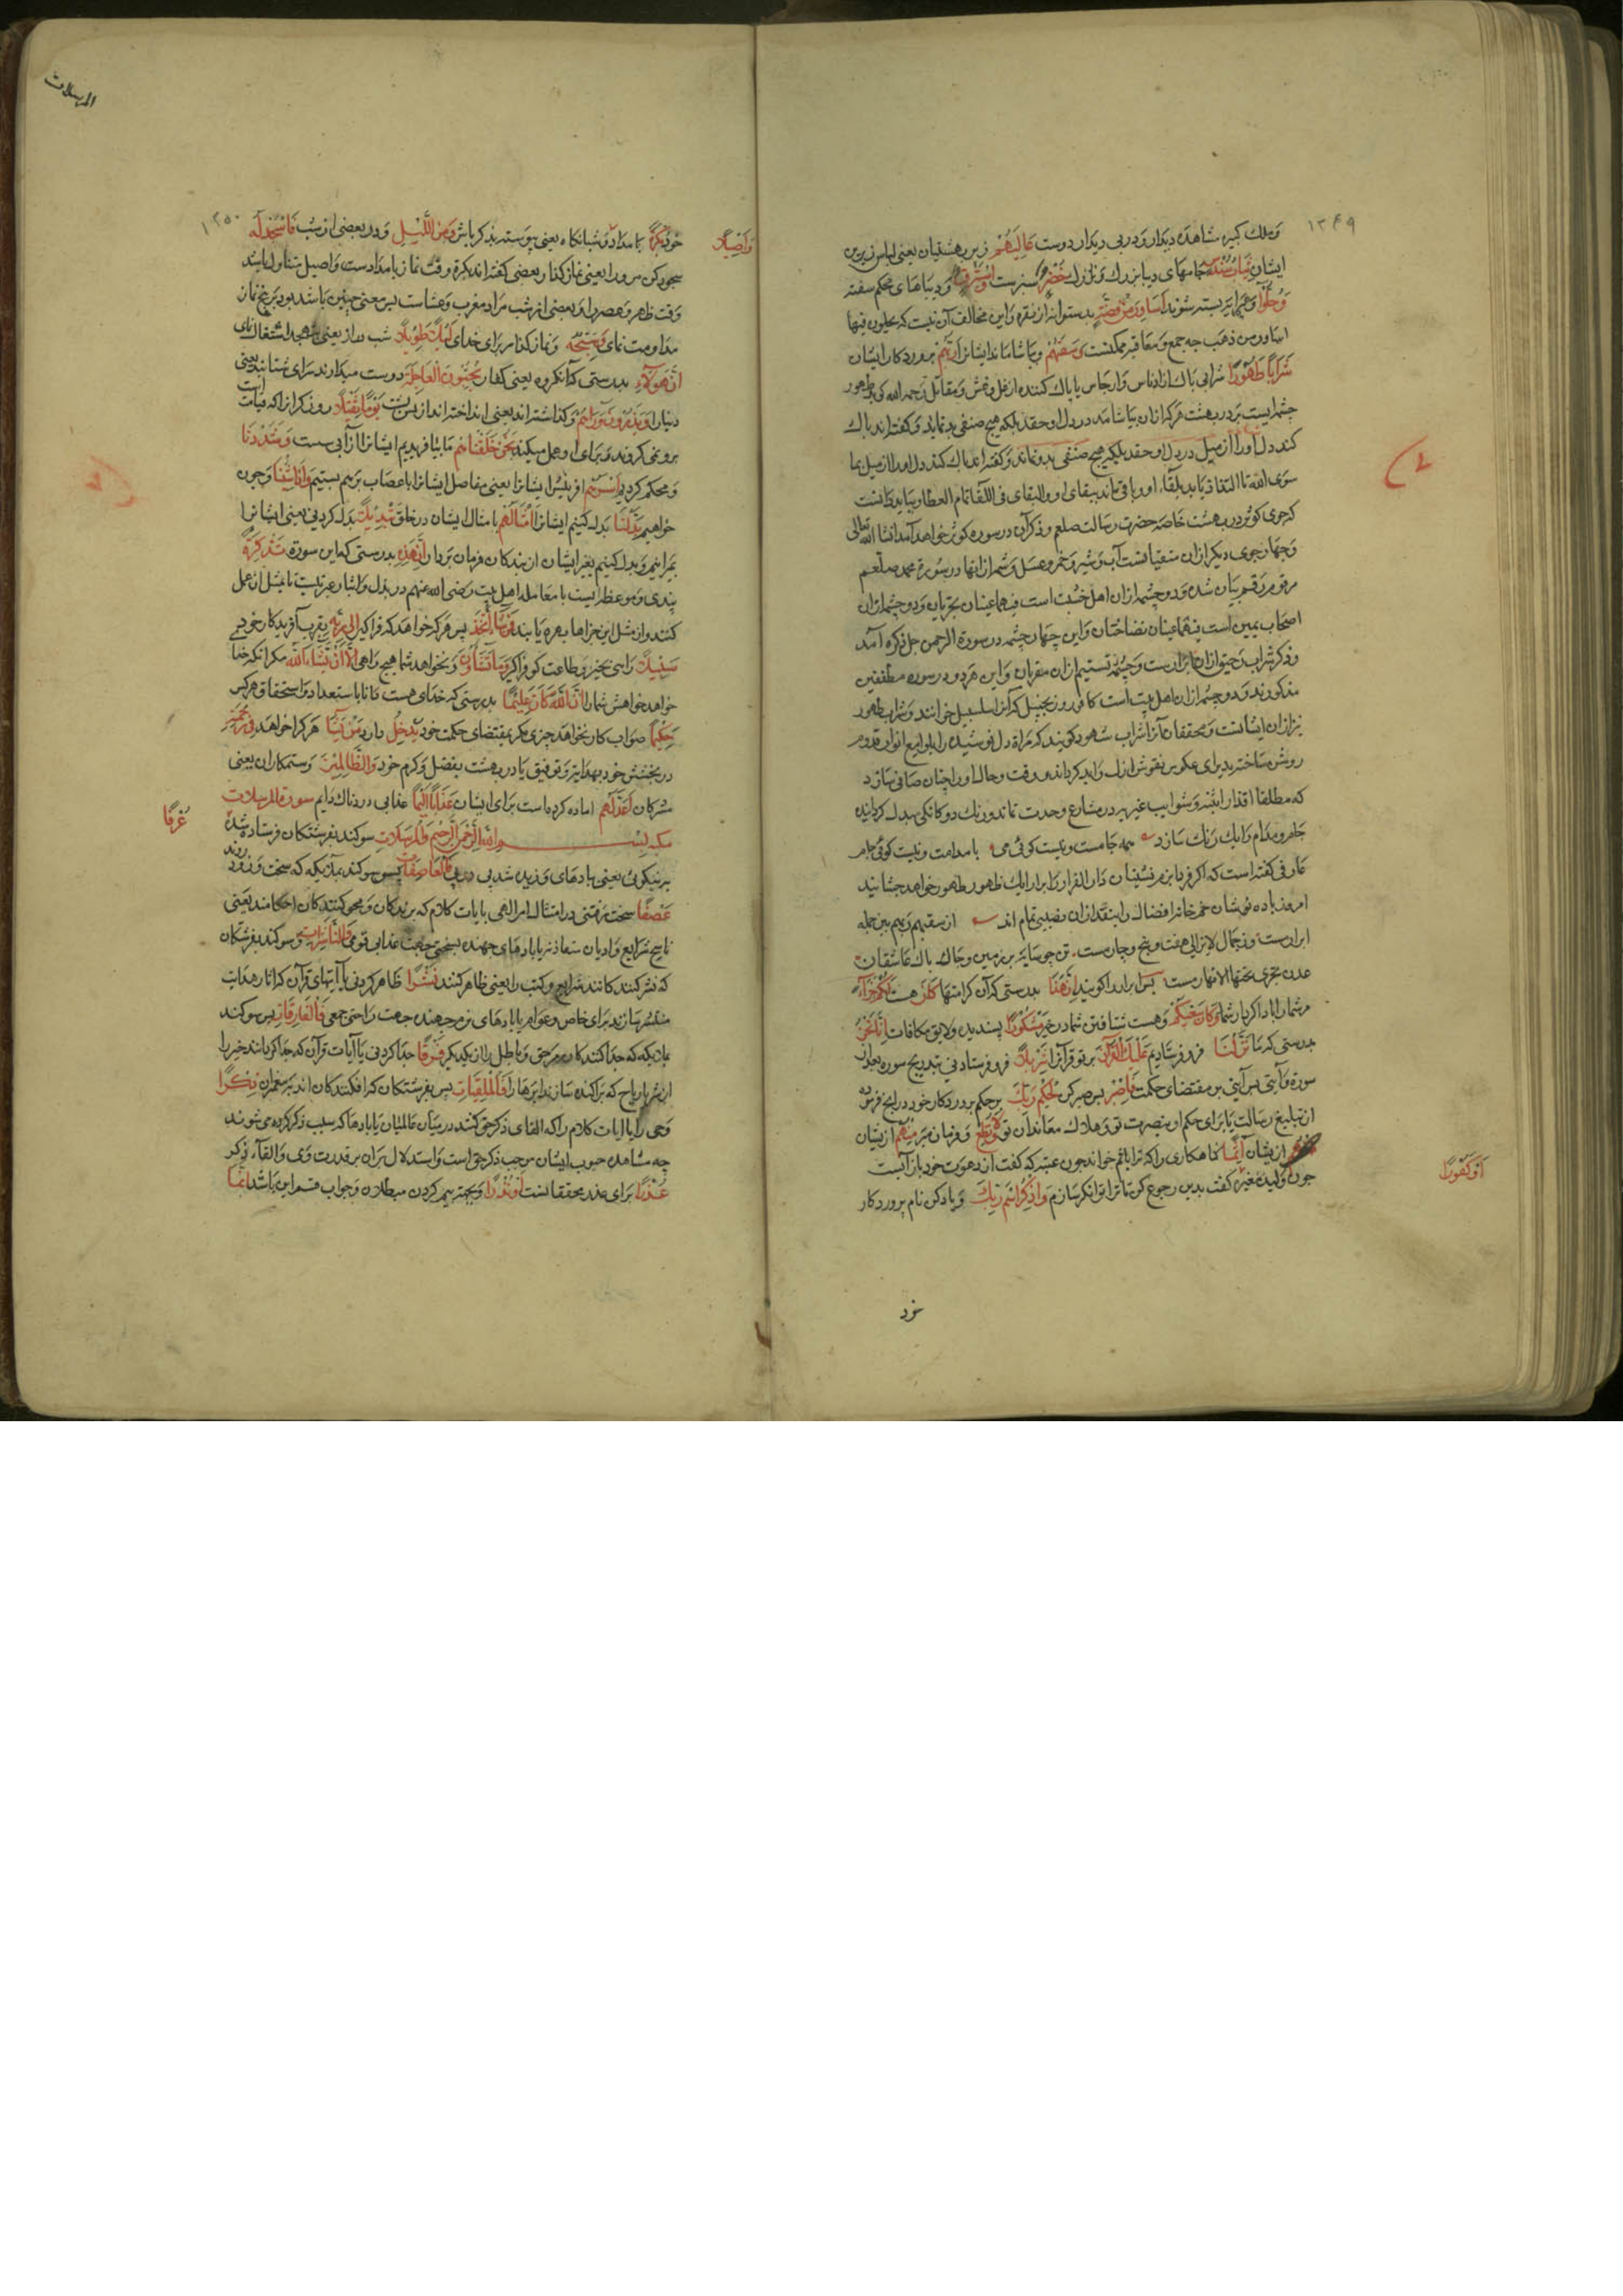 ۱۳۴۹
وملك كبير مشاهده ديدار و دربی ديدار دوست عَالِيَهُمْ زبر بهشتيان يعنی لباس زبرين
ايشان ثِيَابُ سُنْدُسٍ جامهای ديبا نازك خُضْرٌ سبزست وَاِسْتَبْرَقٌ و ديباهای محكم سفته
وَحُلُّوا و پيرايه بسته شوند اَسَاوِرَ مِنْ فِضَّةٍ بدستوانها از نقره و اين مخالف آن نيست كه يحلون فيها
اساور من ذهب چه جمع و معاقبه ممكنست وَسَقٰهُمْ و بياشاماند ايشانرا رَبُّهُمْ پروردكار ايشان
شَرَابًا طَهُورًا شرابی پاك از ادناس و ارجاس يا پاك كننده از غل و غش و مقاتل رحمه الله كويد طهور
چشمه ايست بر در بهشت هر كه از ان بياشامد در دل او حقد بلكه هيچ صنفی بد نماند و كفته اند پاك
كند دل او را از ميل در دل او حقد بلكه هيچ صنفی بد نماند و كفته اند پاك كند دل او را از ميل بما
سوی الله تا التذاذ يابد بلقاء او و باقی ماند ببقای او و البقای فی اللقا تمام العطا و ببايد دانست
كه جوی كوثر در بهشت خاصه حضرت رسالت صلعم و ذكر آن در سوره كوثر خواهد آمد انشا الله تعالی
و چهار جوی ديكر از ان متقيانست آب و شير و خمر و عسل و شمه از انها در سورة محمد صلعم
مرقوم رقم بيان شده و دو چشمه از ان اهل خشيت است فيهما عينان تجريان و دو چشمه از ان
اصحاب يمين است فيهما عينان نضاختان و اين چهار چشمه در سورة الرحمن جل ذكره آمد
و ذكر شراب رحيق از ان ابرارست و چشمه تسنيم از ان مقربان و اين هر دو در سوره مطففين
مذكورند و دو چشمه از ان اهل بيت است كافور و زنجبيل كه آنرا سلسبيل خوانند و شراب طهور
نيز از ان ايشانست و محققان آنرا شراب شهود كويند كه مرآة دل نوشيده را بلوامع انوار قدوم
روشن ساخته پذيرای عكوس نقوش ازل و ابد كرداند و وقت و حال او را چنان صافی سازد
كه مطلقا اقذار اثنينيه و شوايب غيريه در مشارع وحدت نماند و رنك دوكانكی بيدل كرداند
جام و مدام را يك رنك سازد همه جامست و نيست كوئی می يا مدامست و نيست كوئی جام
عارفی كفته است كه اكر فردا بزم نشينان دار القرار را برارايك ظهور طهور خواهد چشانيد
امروز باده نوشان خمخانه افضال را ابنقد از ان نصيبی تمام اند از سقيهم ربهم بين جمله
ابرار مست وز جمال لايزالی هفت و پنج و چار مست تن چو سايه بر زمين و جان پاك عاشقان
عدن تجری تحتها الانهار مست پس ابرار را كويند اِنَّ هٰذَا بدرستی كه آن كرامتها كَانَ هست لَكُمْ جَزَاءً
مر شما را پاداش كردار شما وَكَانَ سَعْيُكُمْ و هست شتافتن شما در خير مَشْكُورًا پسنديده و لايق مكافات اِنَّا نَحْنُ
بدرستی كه ما نَزَّلْنَا فرو فرستاديم عَلَيْكَ الْقُرْآنَ بر تو قرآنرا تَنْزِيلًا فرو فرستادنی بتدريج سوره بعد از
سوره و آيتی پس آيتی بر مقتضای حكمت فَاصْبِرْ پس صبر كن لِحُكْمِ رَبِّكَ بر حكم پروردكار خود در آنچه فرموده
از تبليغ رسالت يا برای حكم او بنصرت تو و هلاك معاندان تو وَلَا تُطِعْ و فرمان مبر مِنْهُمْ از ايشان
از يشان آثِمًا كناهكاری را كه ترا باثم خواند چون عتبه كه كفت از دعوت خود باز آيست
اَوْ كَفُورًا
چون وليد مغيره كفت بدين رجوع كن تا ترا توانكر سازم وَاذْكُرِ اسْمَ رَبِّكَ و ياد كن نام پروردكار
خود
المرسلات
۱۳۵۰
خود بُكْرَةً بامداد و شبانكاه يعنی پيوسته بذكر باش وَمِنَ اللَّيْلِ و در بعضی از شب فَاسْجُدْ لَهُ
وَاَصِيلًا
سجود كن مرورا يعنی نماز كذار بعضی كفته اند بكرة وقت نماز بامدادست و اصيل متناول باشد
وقت ظهر و عصر را و بعضی از شب مراد مغرب و عشاست پس معنی چنين باشد بود بر پنج نماز
مداومت نمای وَسَبِّحْهُ و نماز كذار برای خدای لَيْلًا طَوِيلًا شب دراز يعنی بتهجد اشتغال نمای
اِنَّ هٰؤُلَاءِ بدرستی كه آنكروه يعنی كفار يُحِبُّونَ الْعَاجِلَةَ دوست ميدارند سرای شتابنده يعنی
دنيا را وَيَذَرُونَ وَرَاءَهُمْ و كذاشته اند يعنی انداخته اند از پس پشت يَوْمًا ثَقِيلًا روزی كران كه قيامت است
برو نمی كروند و برای او عمل نميكنند نَحْنُ خَلَقْنَاهُمْ ما بيافريديم ايشانرا از آبی سست وَشَدَدْنَا
و محكم كرديم اَسْرَهُمْ افرينش ايشانرا يعنی مفاصل ايشانرا باعصاب برهم بستيم وَاِذَا شِئْنَا و چون
خواهيم بَدَّلْنَا بدل كنيم ايشانرا اَمْثَالَهُمْ بامثال ايشان در خلق تَبْدِيلًا بدل كردنی يعنی ايشانرا
بميرانيم و بدل كنيم بغير ايشان از بندكان فرمان بردار اِنَّ هٰذِهِ بدرستی كه اين سوره تَذْكِرَةٌ
پندی و موعظه ايست با معامله اهل بيت رضی الله عنهم در بذل و ايثار عبرتيست تا بمثل ان عمل
كنند و از مثل اين جزاها بهره يابند فَمَنْ شَاءَ اتَّخَذَ پس هر كه خواهد كه فرا كيرد اِلٰى رَبِّهِ بقرب آفريدكار خود
سَبِيلًا راهی بخير و طاعت كو فراكير وَمَا تَشَاؤُنَ و نخواهد شما هيچ راهی اِلَّا اَنْ يَشَاءَ اللهُ مكر انكه خدا
خواهد خواهش شما را اِنَّ اللهَ كَانَ عَلِيمًا بدرستی كه خدای هست دانا باستعداد و استحقاق هر كس
حَكِيمًا صواب كار نخواهد چيزی مكر بمقتضای حكمت خود يُدْخِلُ دارد مَنْ يَشَاءُ هر كرا خواهد فِي رَحْمَتِهِ
در بخشش خود بهدايت و توفيق يا در بهشت بفضل و كرم خود وَالظَّالِمِينَ و ستمكاران يعنی
مشركان اَعَدَّ لَهُمْ اماده كرده است برای ايشان عَذَابًا اَلِيمًا عذابی دردناك دايم سورة المرسلات
مكيه بِسْمِ اللهِ الرَّحْمٰنِ الرَّحِيمِ وَالْمُرْسَلَاتِ سوكند بفرشتكان فرستاده شده
عُرْفًا
بر نيكوئی يعنی بادهای وزيده شده پی در پی فَالْعَاصِفَاتِ پس سوكند بملائكه كه سخت و زود روند
عَصْفًا سخت رفتنی در امتثال امر الهی يا بايات كلام كه برندكان و محو كنندكان احكامند يعنی
ناسخ شرايع و اديان متقادنه يا بادهای جهنده بسختی جهت عذاب قومی وَالنَّاشِرَاتِ و سوكند بفرشتكان
كه نشر كنندكانند شرايع و كتب را يعنی ظاهر كنند نَشْرًا ظاهر كردنی يا آيتهای قرآن كه آثار هدايت
منتشر سازند برای خاص و عوام يا بادهای نرم جهنده جهت راحتی جمعی فَالْفَارِقَاتِ پس سوكند
بملايكه كه جدا كنندكانند مر حق و باطل را از يكديكر فَرْقًا جدا كردنی يا آيات قرآن كه جدا كردانند خير را
از شر يا رياح كه پراكنده سازند ابرها را فَالْمُلْقِيَاتِ پس بفرشتكان كه افكنندكان اند بر پيغمبران ذِكْرًا
وحی را يا ايات كلام را كه القای ذكر حق كنند در ميان عالميان يا بادها كه سبب ذكر كرده می شوند
چه مشاهده هبوب ايشان موجب ذكر خداست و استدلال بر ان بر قدرت وی و القاء ذكر
عُذْرًا برای عذر محققانست اَوْ نُذْرًا و بجهة بيم كردن مبطلان و جواب قسم اين باشد اِنَّمَا